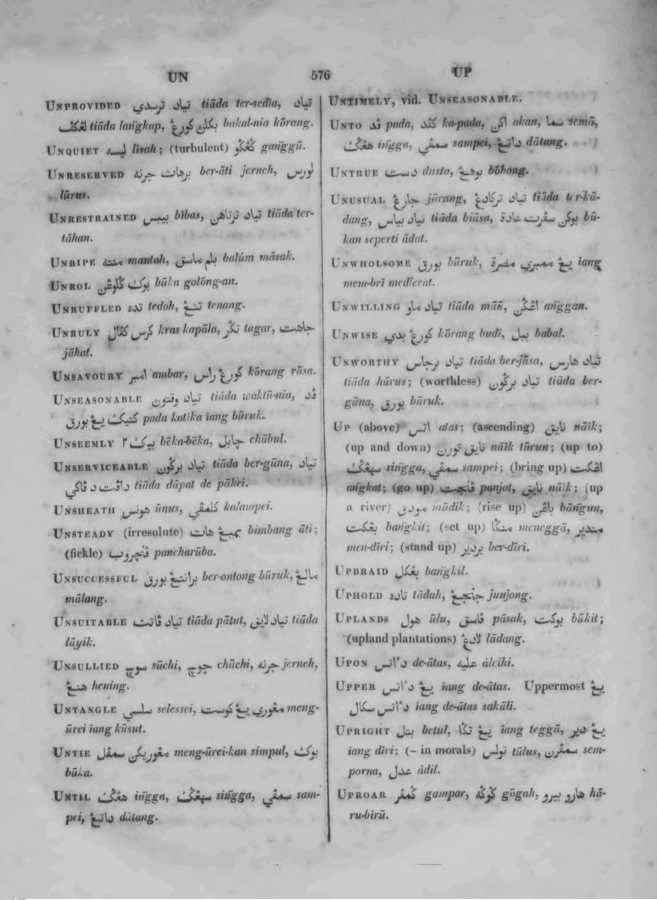 UN 576 UP
UNPROVIDED تياد ترسدي tiāda ter-sedīa, تياد
لڠكڤ tiāda lańgkap, بكلن كورڠ bakal-nia kōrang.
UNQUIET ليسه lisah; (turbulent) گڠگو gańggū.
UNRESERVED برهات جرنه ber-āti jerneh, لورس
lūrus.
UNRESTRAINED بيبس bības, تياد ترتاهن tiāda ter-
tāhan.
UNRIPE منته mantah, بلم ماسق balūm māsak.
UNROL بوك گولوڠن būka golōng-an.
UNRUFFLED تده tedoh, تنڠ tenang.
UNRULY كرس كڤال kras kapāla, تگر tagar, جاهت
jāhat.
UNSAVOURY امبر ambar, كورڠ راس kōrang rāsa.
UNSEASONABLE تياد وقتون tiāda waktū-nia, ڤد
كتيك يڠ بورق pada katīka īang būruk.
UNSEEMLY بيك٢ bēka-bēka, چابل chābul.
UNSERVICEABLE تياد برگون tiāda ber-gūna, تياد
داڤت د ڤاكي tiāda dāpat de pākei.
UNSHEATH هونس ūnus, كلمڤي kalampei.
UNSTEADY (irresolute) بمبڠ هات bimbang āti;
(fickle) ڤنچروب pancharūba.
UNSUCCESSFUL برانتڠ بورق ber-ontong būruk, مالڠ
mālang.
UNSUITABLE تياد ڤاتت tiāda pātut, تياد لايق tiāda
lāyik.
UNSULLIED سوچ sūchi, چوچ chūchi, جرنه jerneh,
هنڠ hening.
UNTANGLE سلسي selessei, مڠوري يڠ كوست meng-
ūrei īang kūsut.
UNTIE مڠوريكن سمڤل meng-ūrei-kan simpul, بوك
būka.
UNTIL هڠگ ińgga, سهڠگ sińgga, سمڤي sam-
pei, داتڠ dātang.
UNTIMELY, vid. UNSEASONABLE.
UNTO ڤد pada, كڤد ka-pada, اكن akan, سما semā,
هڠگ ińgga, سمڤي sampei, داتڠ dātang.
UNTRUE دست dusta, بوهڠ bōhong.
UNUSUAL جارڠ jārang, تياد تركادڠ tiāda ter-kā-
dang, تياد بياس tiāda biāsa, بوكن سڤرت عادة bū-
kan seperti ādat.
UNWHOLESOME بورق būruk, يڠ ممبري مضرة īang
mem-brī medlerat.
UNWILLING تياد ماو tiāda māū, اڠگن ańggan.
UNWISE كورڠ بدي kōrang budī, ببل babal.
UNWORTHY تياد برجاس tiāda ber-jāsa, تياد هارس
tiāda hārus; (worthless) تياد برگون tiāda ber-
gūna, بورق būruk.
UP (above) اتس atas; (ascending) نايق nāīk;
(up and down) نايق تورن nāīk tūrun; (up to)
سهڠگ sińgga, سمڤي sampei; (bring up) اڠكت
ańgkat; (go up) ڤنجت panjat, نايق nāīk; (up
a river) مودق mūdik; (rise up) باڠن bāńgun,
بڠكت bańgkit; (set up) منگا meneggā, مندير
men-dīri; (stand up) بردير ber-dīri.
UPBRAID بڠكل bańgkil.
UPHOLD تاده tādah, جنجڠ junjong.
UPLANDS هول ūlu, ڤاسق pāsak, بوكت būkit;
(upland plantations) لادڠ lādang.
UPON داتس de-ātas, عليه alcihi.
UPPER يڠ داتس īang de-ātas. Uppermost يڠ
داتس سكال īang de-ātas sakāli.
UPRIGHT بتل betul, يڠ تگا īang teggā, يڠ دير
īang dīri; (– in morals) تولس tūlus, سمڤرن sem-
porna, عدل ādil.
UPROAR گمڤر gampar, گوگه gūgah, هارو بيرو hā-
ru-birū.